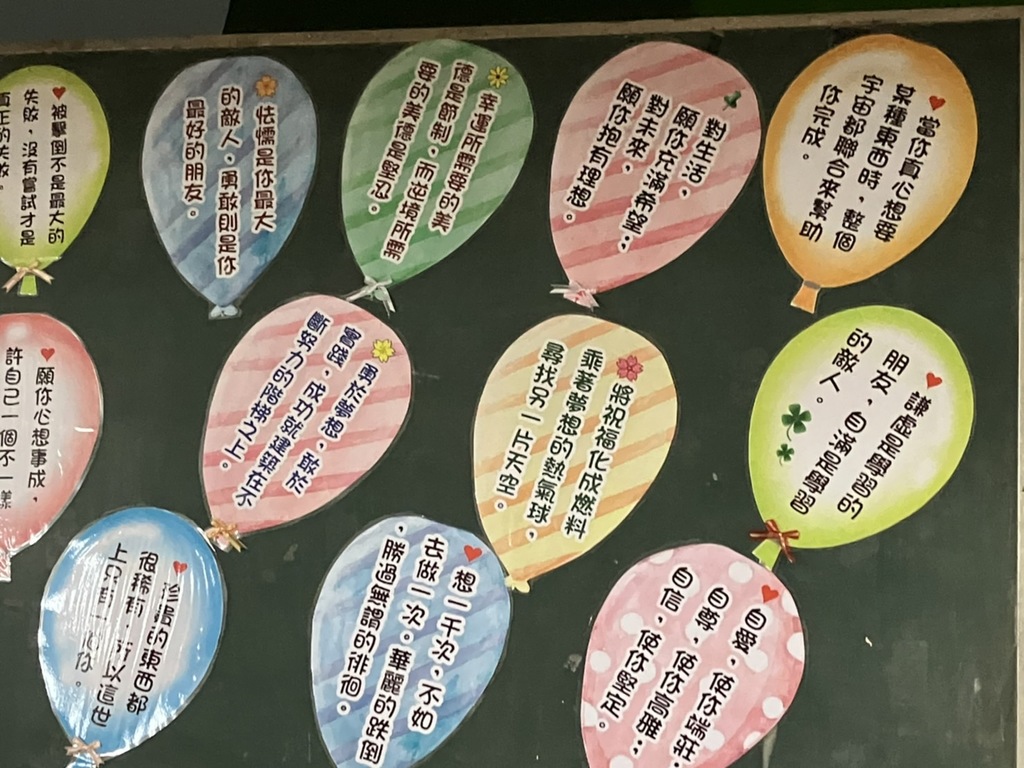 被擊倒不是最大的
失敗，沒有嘗試才是
真正的失敗。
怯懦是你最大
的敵人、勇敢則是你
最好的朋友。
幸運所需要的美
德是節制、而逆境所需
要的美德是堅忍。
對生活，
願你充滿希望；
對未來，
願你抱有理想。
當你真心想要
某種東西時，整個
宇宙都聯合來幫助
你完成。
願你心想事成，
許自己一個不一樣
勇於夢想、敢於
實踐，成功就建築在不
斷努力的階梯之上。
將祝福化成燃料
乘著夢想的熱氣球，
尋找另一片天空。
謙虛是學習的
朋友，自滿是學習
的敵人。
珍貴的東西都
很稀有，所以這世
上只有一個你。
想一千次，不如
去做一次。華麗的跌倒
，勝過無謂的徘徊。
自愛，使你端莊；
自尊，使你高雅；
自信，使你堅定。